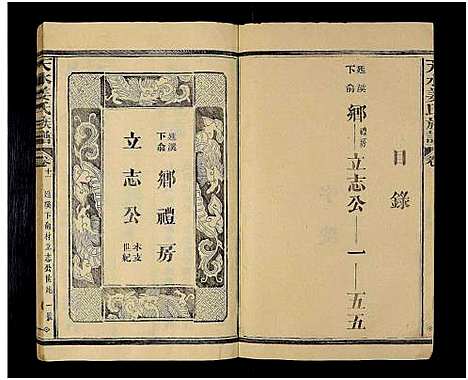 目錄
廷溪
下俞
鄉禮房立志公——一——五五
天水姜氏族譜
卷
廷溪
下俞
鄉禮房
立志公
木支
世紀
天水姜氏族譜
卷十二
廷溪下俞村立志公世紀
一張